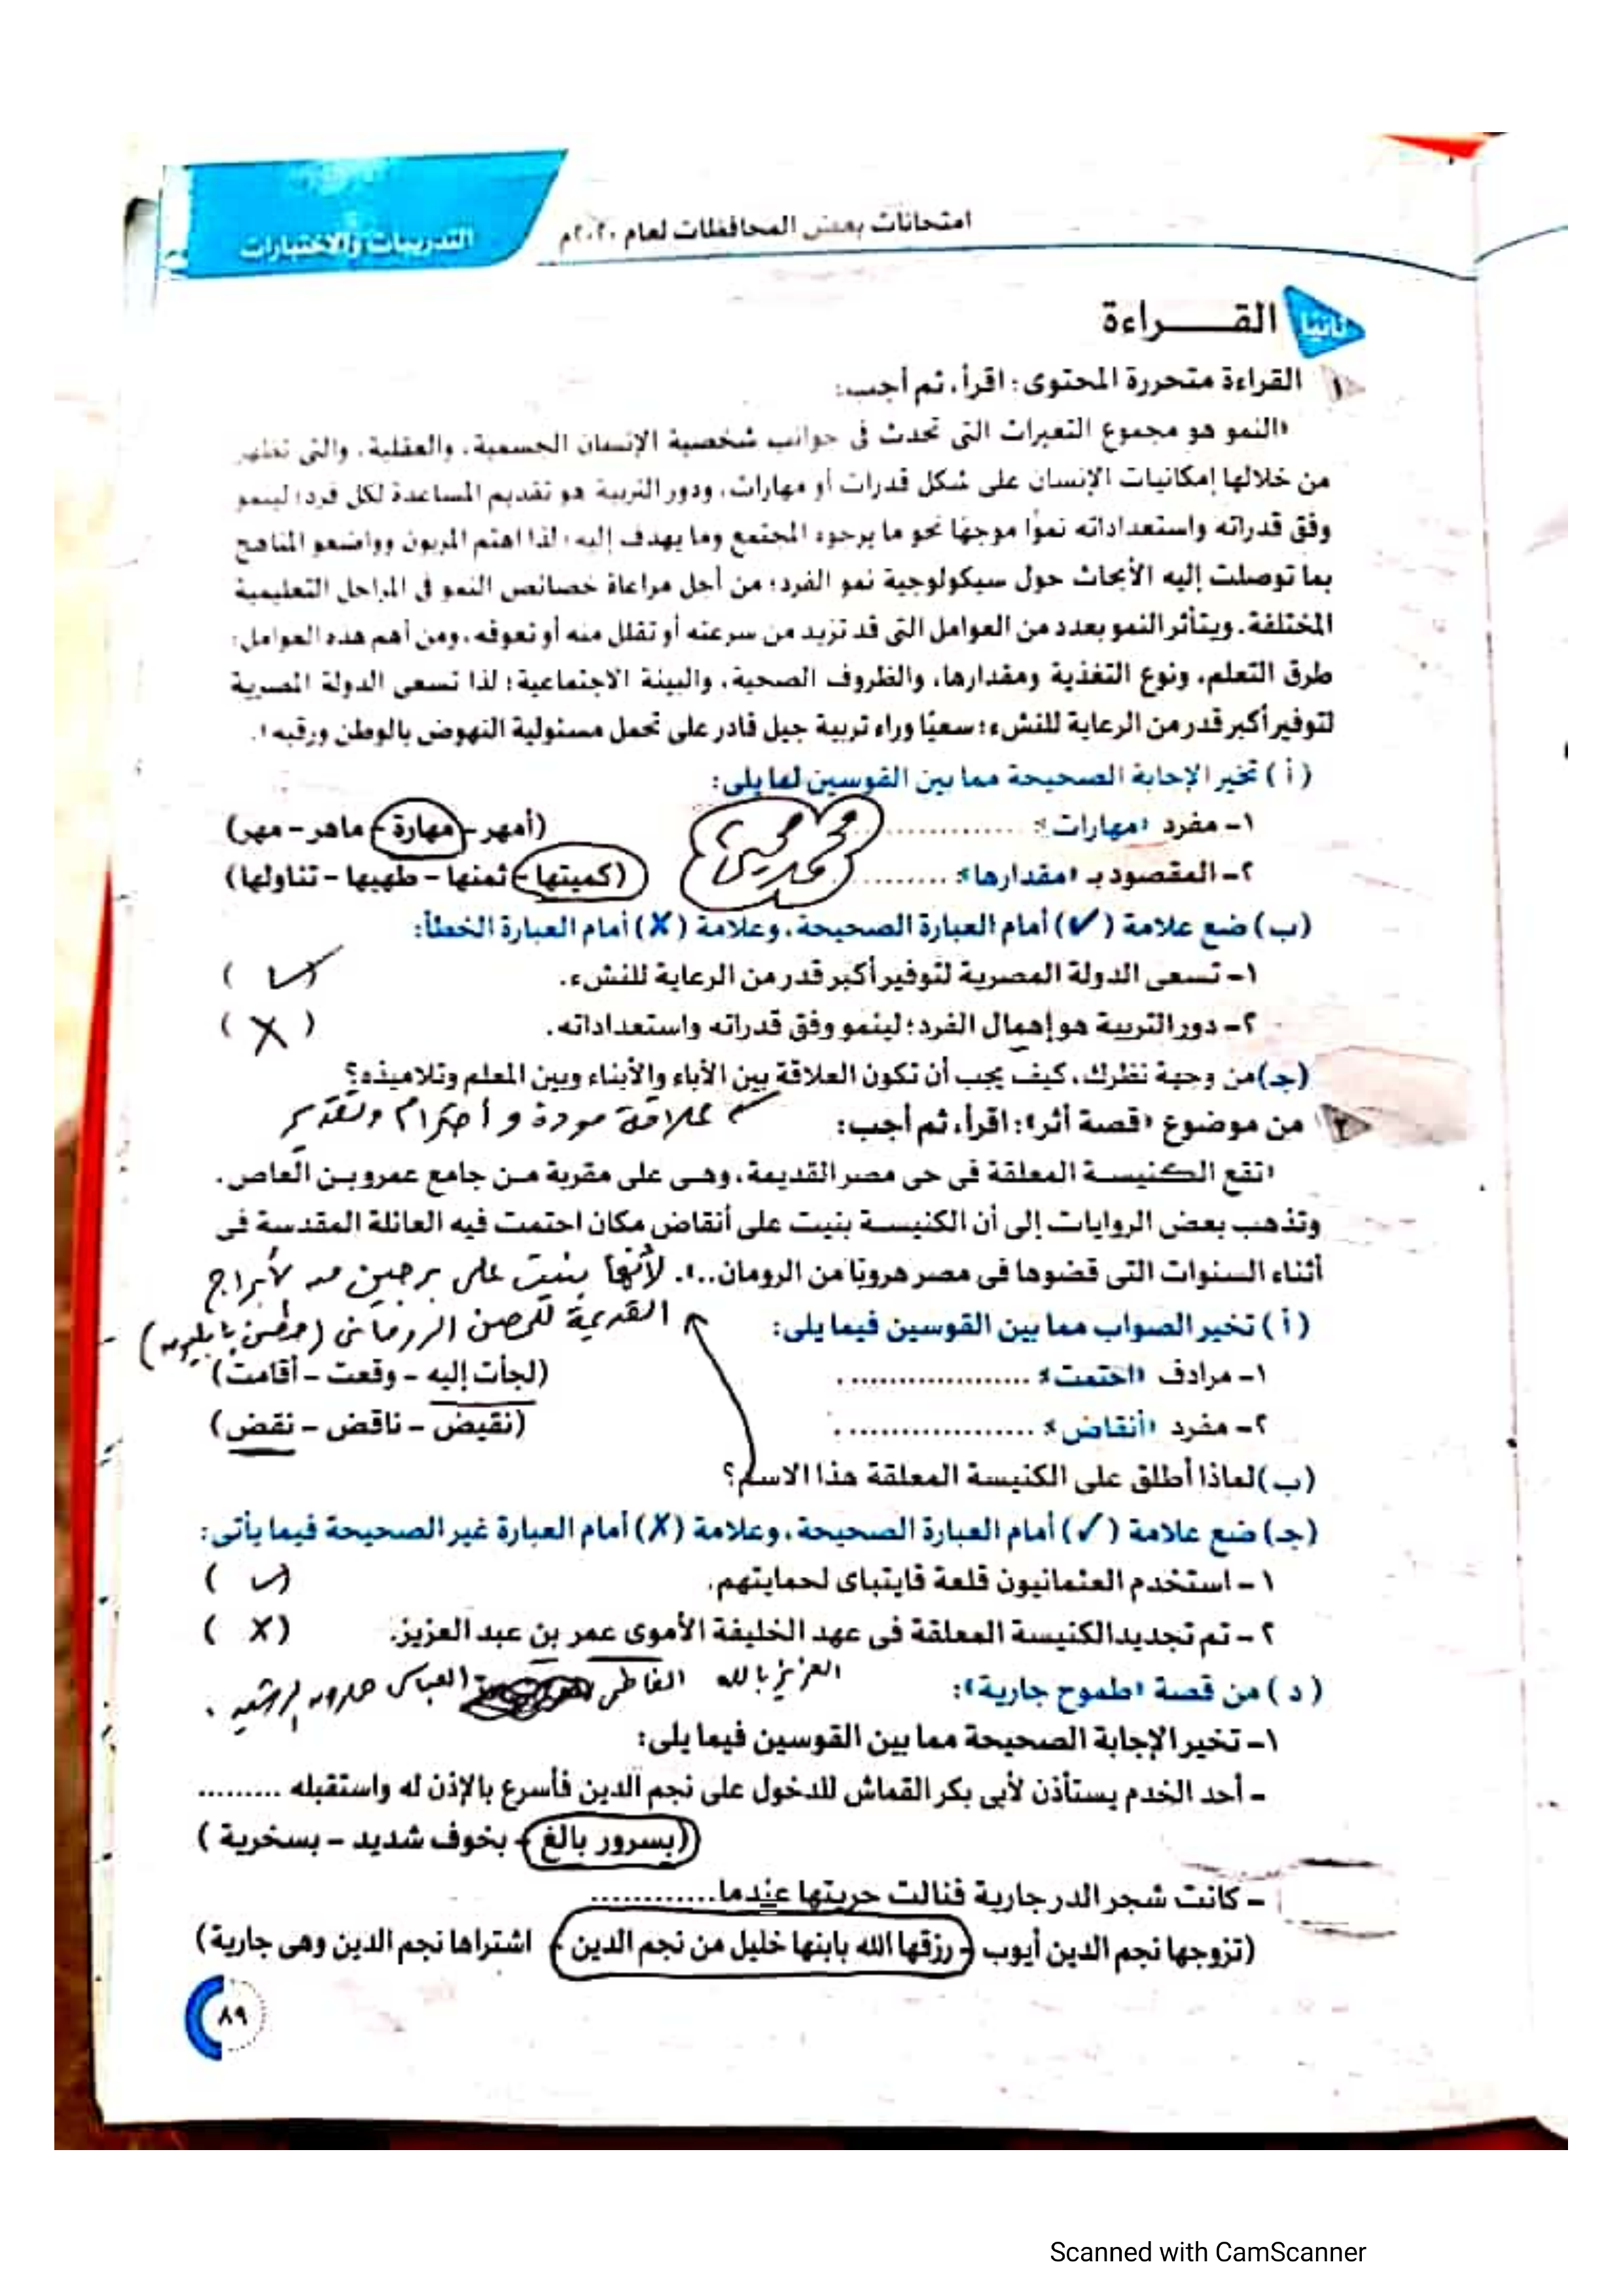 امتحانات بعض المحافظات لعام ٢٠٢٠م
التدريبات والاختبارات
ثانيا القـــــراءة
١ القراءة متحررة المحتوى: اقرأ، ثم أجب:
«النمو هو مجموع التغيرات التى تحدث فى جوانب شخصية الإنسان الجسمية، والعقلية، والتى تظهر
من خلالها إمكانيات الإنسان على شكل قدرات أو مهارات، ودور التربية هو تقديم المساعدة لكل فرد؛ لينمو
وفق قدراته واستعداداته نموًا موجهًا نحو ما يرجوه المجتمع وما يهدف إليه؛ لذا اهتم المربون وواضعو المناهج
بما توصلت إليه الأبحاث حول سيكولوجية نمو الفرد؛ من أجل مراعاة خصائص النمو فى المراحل التعليمية
المختلفة. ويتأثر النمو بعدد من العوامل التى قد تزيد من سرعته أو تقلل منه أو تعوقه، ومن أهم هذه العوامل:
طرق التعلم، ونوع التغذية ومقدارها، والظروف الصحية، والبيئة الاجتماعية؛ لذا تسعى الدولة المصرية
لتوفير أكبر قدر من الرعاية للنشء؛ سعيًا وراء تربية جيل قادر على تحمل مسئولية النهوض بالوطن ورقيه».
( أ ) تخير الإجابة الصحيحة مما بين القوسين لما يلى:
١- مفرد «مهارات»: .................. (أمهر - مهارة - ماهر - مهر)
محمد
٢- المقصود بـ «مقدارها»: .......... (كميتها - ثمنها - طهيها - تناولها)
(ب) ضع علامة (✓) أمام العبارة الصحيحة، وعلامة (✗) أمام العبارة الخطأ:
١- تسعى الدولة المصرية لتوفير أكبر قدر من الرعاية للنشء. ( ✓ )
٢- دور التربية هو إهمال الفرد؛ لينمو وفق قدراته واستعداداته. ( X )
(جـ) من وجهة نظرك، كيف يجب أن تكون العلاقة بين الأباء والأبناء وبين المعلم وتلاميذه؟
علاقة مودة و أحترام وتقدير
٢ من موضوع «قصة أثر»: اقرأ، ثم أجب:
«تقع الكنيسة المعلقة فى حى مصر القديمة، وهى على مقربة من جامع عمرو بن العاص،
وتذهب بعض الروايات إلى أن الكنيسة بنيت على أنقاض مكان احتمت فيه العائلة المقدسة فى
أثناء السنوات التى قضوها فى مصر هروبًا من الرومان..».
لأنها بنيت على برجين من لأبراج
القديمة للحصن الرومانى (حصن بابليون)
( أ ) تخير الصواب مما بين القوسين فيما يلى:
١- مرادف «احتمت»: .................. . (لجأت إليه - وقعت - أقامت)
٢- مفرد «أنقاض»: .................. . (نقيض - ناقض - نقض)
(ب) لماذا أطلق على الكنيسة المعلقة هذا الاسم؟
(جـ) ضع علامة (✓) أمام العبارة الصحيحة، وعلامة (✗) أمام العبارة غير الصحيحة فيما يأتى:
١- استخدم العثمانيون قلعة قايتباى لحمايتهم. ( ✓ )
٢- تم تجديد الكنيسة المعلقة فى عهد الخليفة الأموى عمر بن عبد العزيز. ( X )
العزيز بالله الفاطمى العباسى هارون الرشيد .
( د ) من قصة «طموح جارية»:
١- تخير الإجابة الصحيحة مما بين القوسين فيما يلى:
- أحد الخدم يستأذن لأبى بكر القماش للدخول على نجم الدين فأسرع بالإذن له واستقبله .........
(بسرور بالغ - بخوف شديد - بسخرية )
- كانت شجر الدر جارية فنالت حريتها عندما.............
(تزوجها نجم الدين أيوب - رزقها الله بابنها خليل من نجم الدين - اشتراها نجم الدين وهى جارية)
٨٩
Scanned with CamScanner